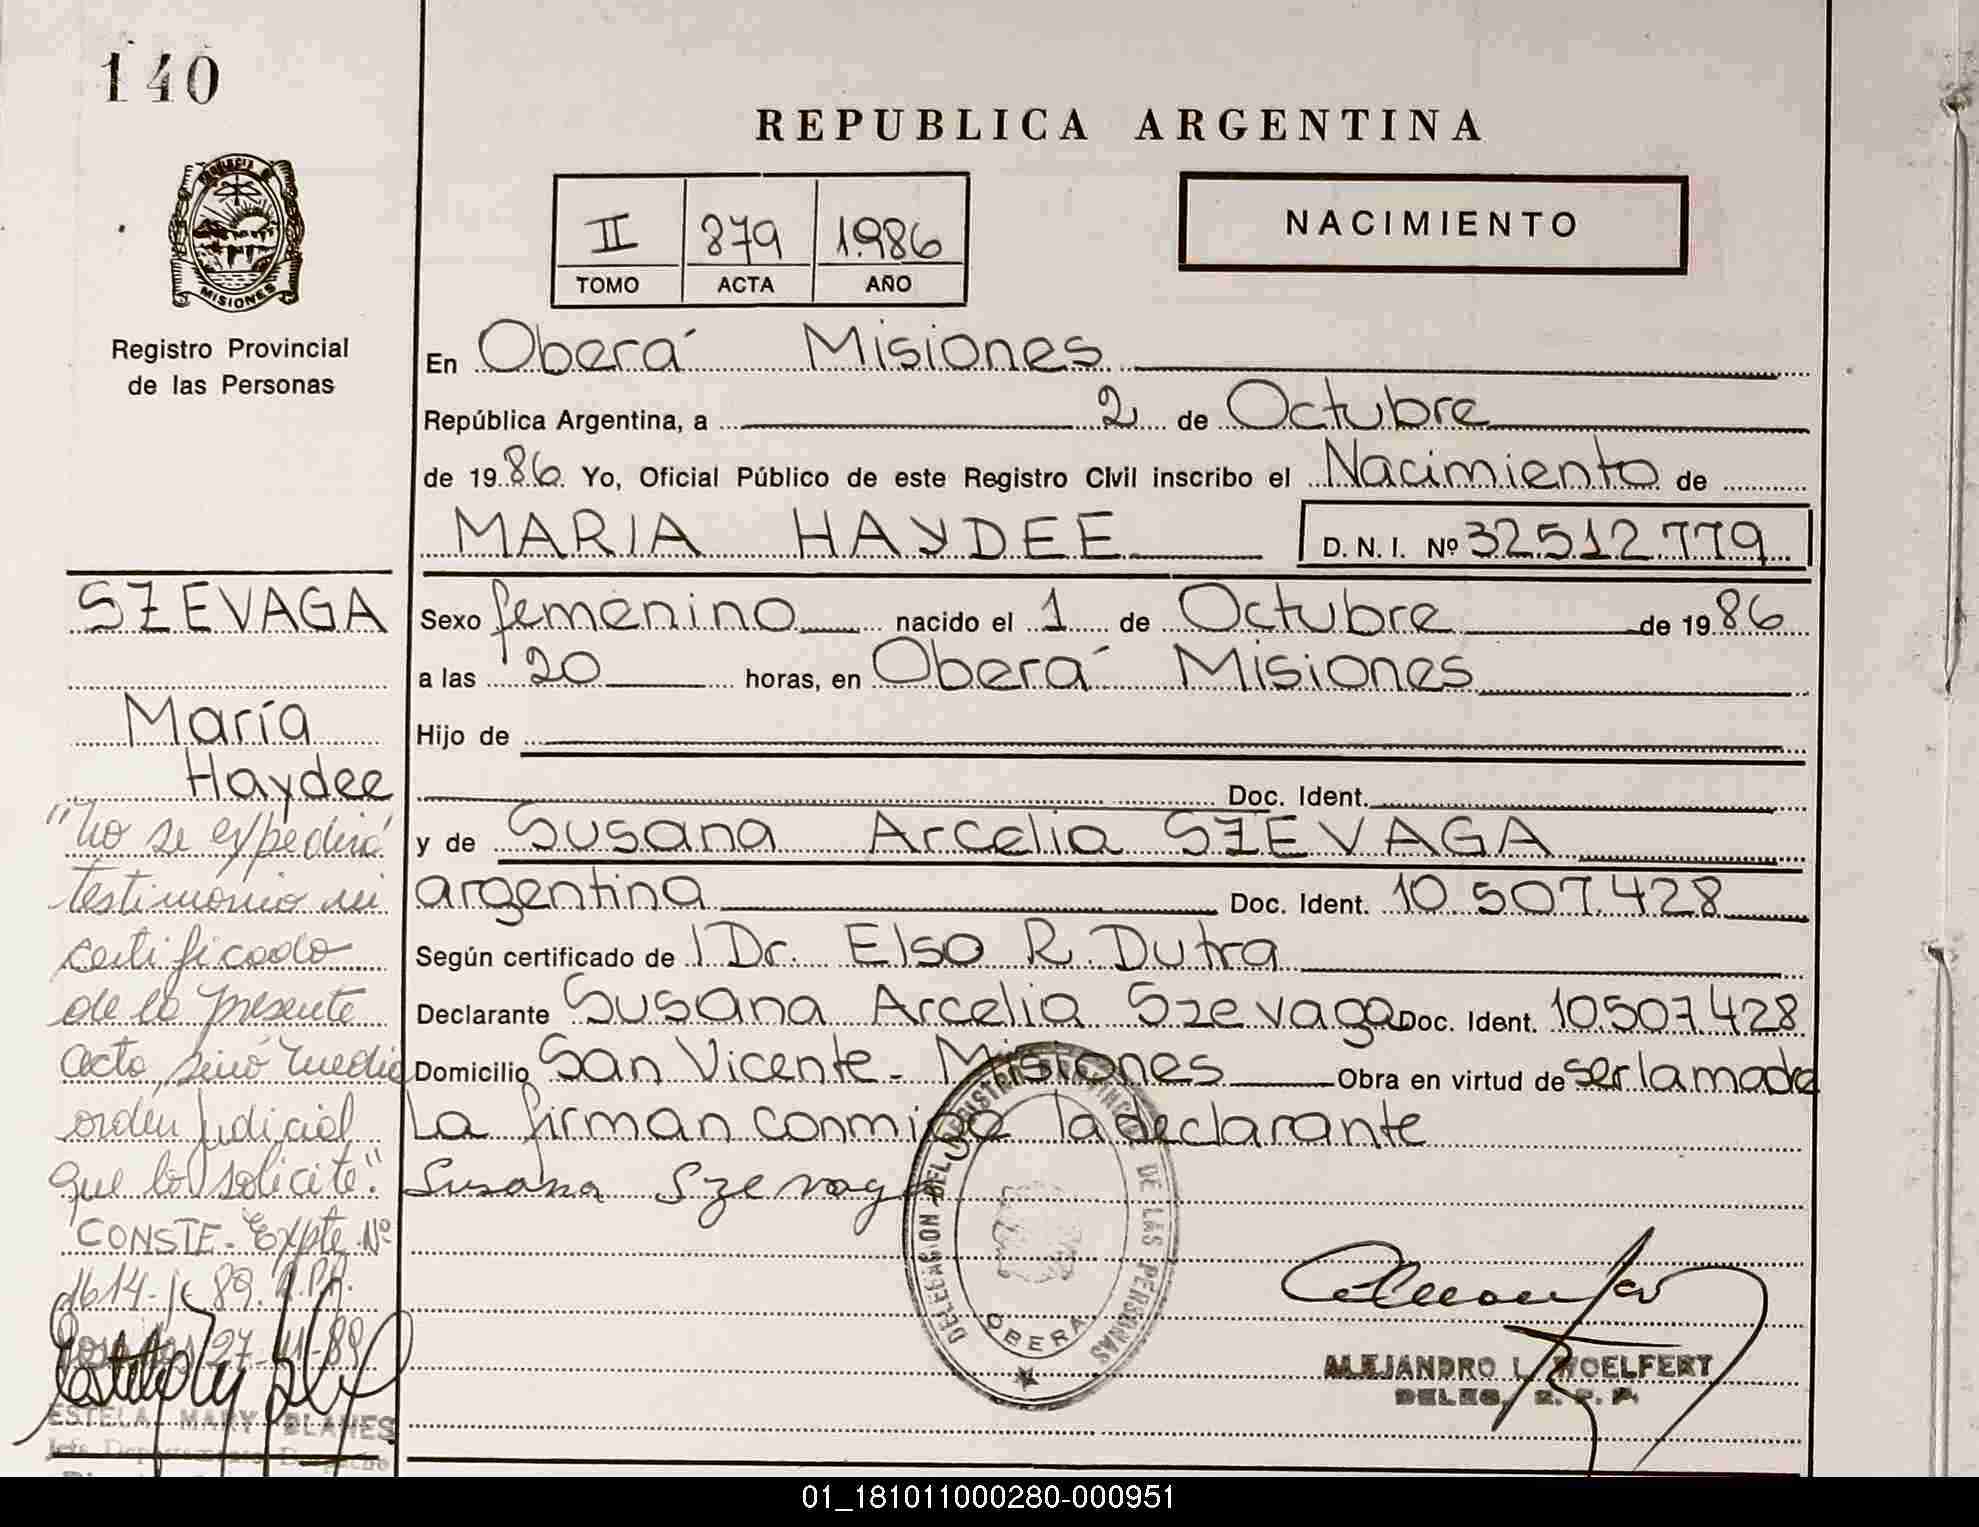 140
PROVINCIA DE
MISIONES
Registro Provincial
de las Personas
SZEVAGA
María
Haydee
"No se expedirá
testimonio ni
certificado
de la presente
acta, sino media
orden judicial
que lo solicite."
CONSTE - Expte. Nº
1614-j-89.
27-11-89
ESTELA MARY BLANES
Jefe Departamento Despacho
REPUBLICA ARGENTINA
II 879 1.986
TOMO ACTA AÑO
NACIMIENTO
En Oberá Misiones
República Argentina, a 2 de Octubre
de 19 86 Yo, Oficial Público de este Registro Civil inscribo el Nacimiento de
MARIA HAYDEE D. N. I. Nº 32.512.779
Sexo femenino nacido el 1 de Octubre de 19 86
a las 20 horas, en Oberá Misiones
Hijo de
Doc. Ident.
y de Susana Arcelia SZEVAGA
argentina Doc. Ident. 10.507.428
Según certificado de l Dr. Elso R. Dutra
Declarante Susana Arcelia Szevaga Doc. Ident. 10.507.428
Domicilio San Vicente - Misiones Obra en virtud de ser la madre
La firman conmigo la declarante
Susana Szevaga
DELEGACION DEL REGISTRO PROVINCIAL DE LAS PERSONAS
OBERA
ALEJANDRO L. WOELFERT
DELEG. R. P. P.
01_181011000280-000951